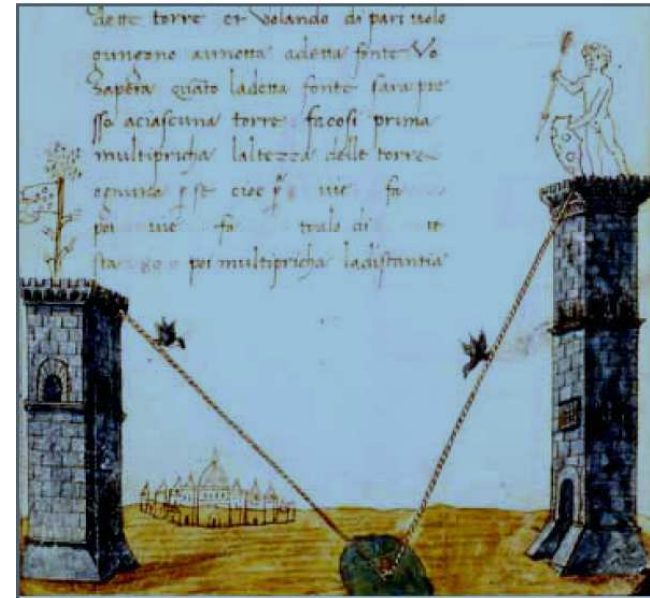 dette torre et volando di pari volo
gungono aunotta adetta fonte Vo
Sapera quãto ladetta fonte sara pre
sso aciascuna torre facosi prima
multipricha laltezza delle torre
ognuna p se cioe p vie fa
poi vie fa tralo di
sta poi multipricha ladistantia